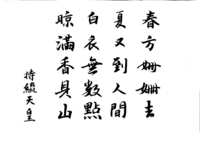 春方姍姍去
夏又到人間
白衣無數點
晾滿香具山
持統天皇